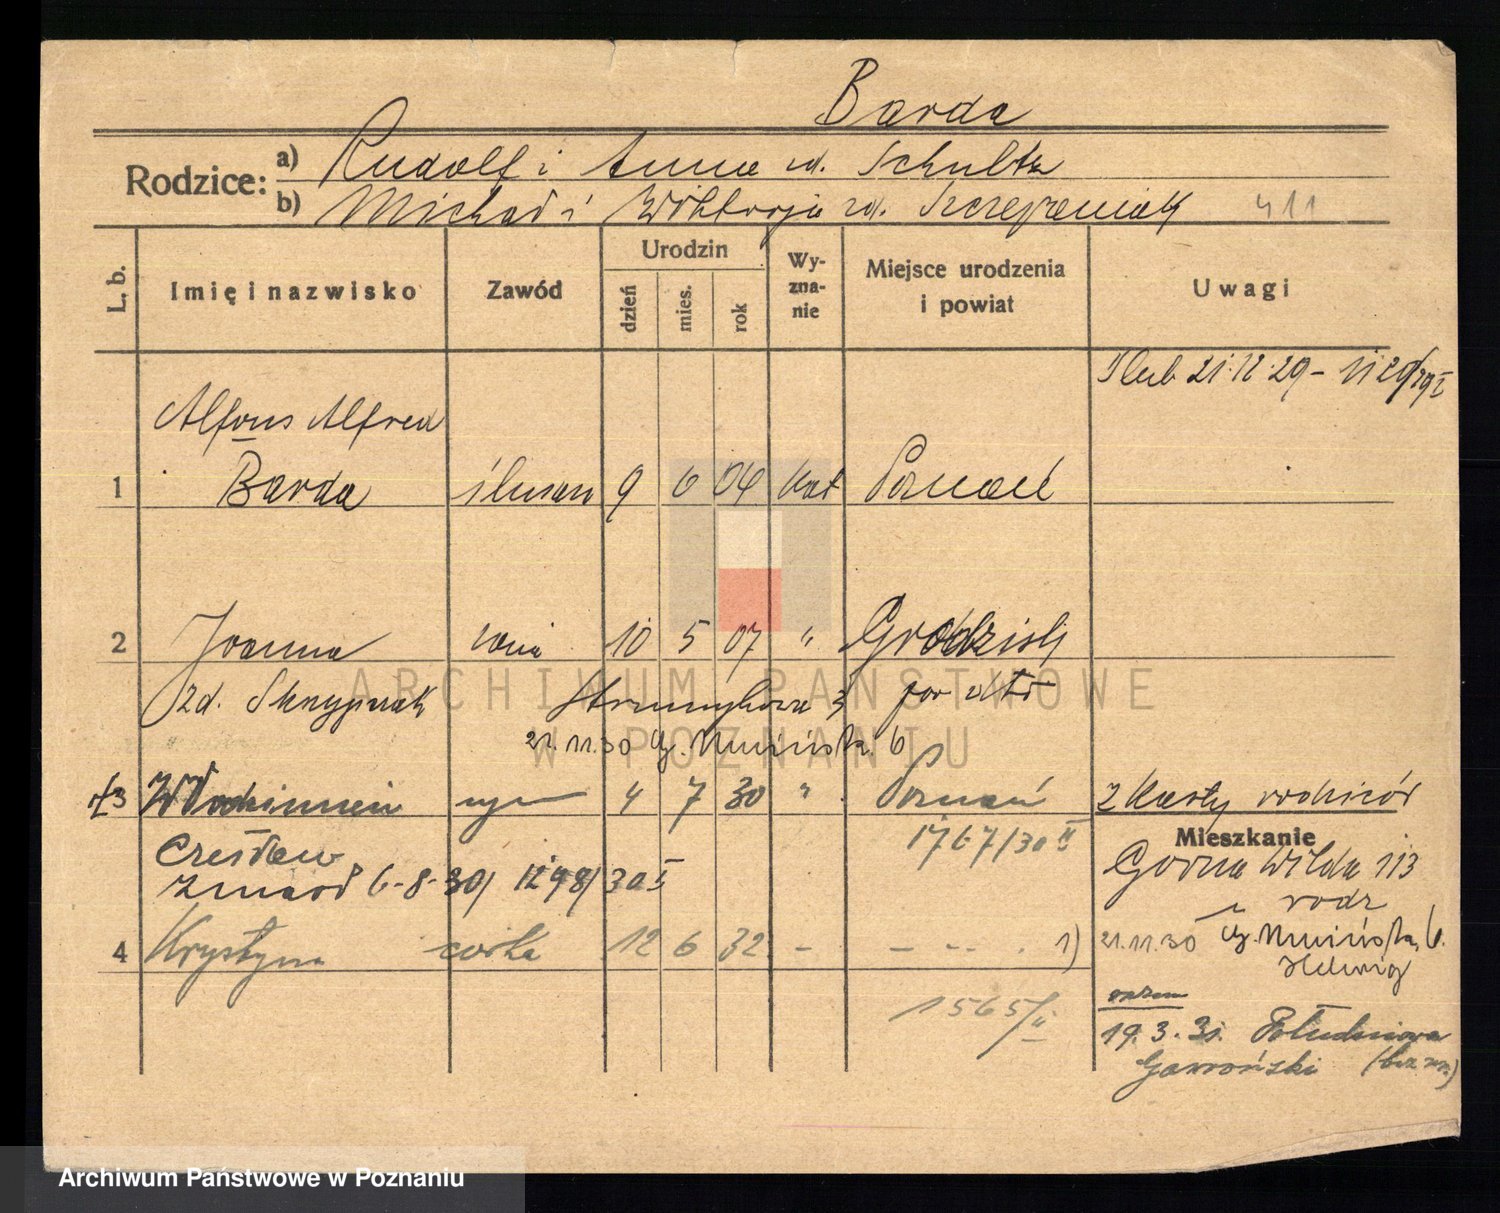 Barda
Rodzice: a) Rudolf i Anna zd. Schultz
b) Michał i Wiktorja zd. Szczepaniak 411
L. b. Imię i nazwisko Zawód Urodzin dzień mies. rok Wy-zna-nie Miejsce urodzenia i powiat Uwagi
Ślub 21.12.29 –
Alfons Alfred
1 Barda ślusarz 9 6 04 kat Poznań
2 Joanna żona 10 5 07 " Grodzisk
zd. Skrzypczak Strumykowa 3
21.11.30 6
3 Włodzimierz syn 4 7 30 " Poznań 2 karty rodziców
1767/30 II
Mieszkanie
Czesław Górna Wilda 113
zmarł 6-8-30 1298/30 I
u rodz
4 Krystyna córka 12 6 32 - - -- . 1) 21.11.30 6.
Helwig
1565/II
razem
19.3.31. Południowa
Gaworński (bez nr.)
ARCHIWUM PAŃSTWOWE
W POZNANIU
Archiwum Państwowe w Poznaniu